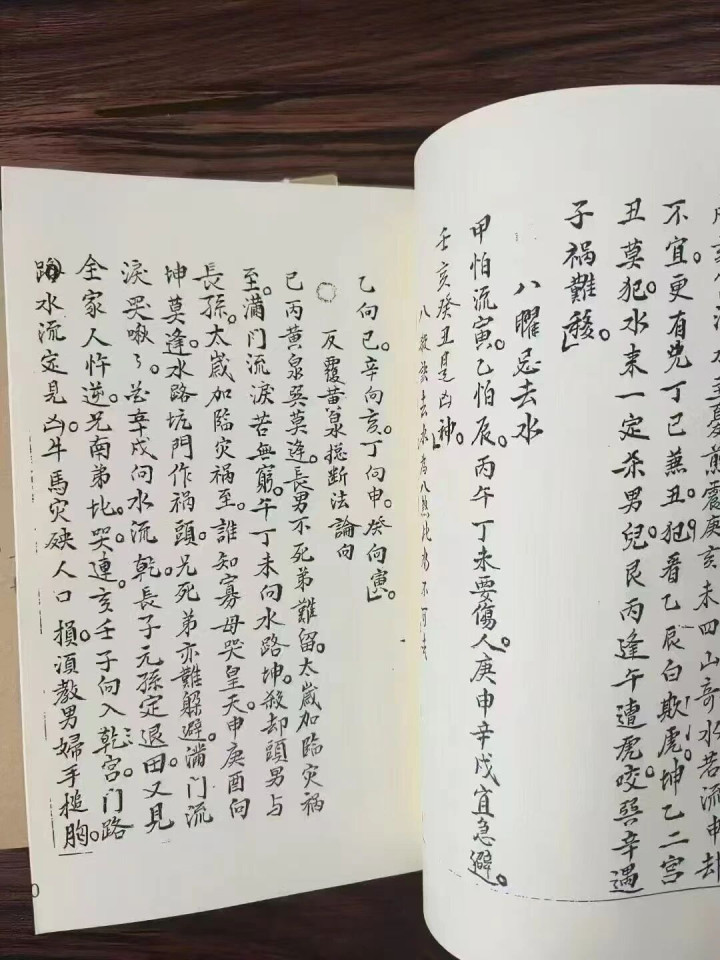 不宜。更有兇丁巳兼丑。犯着乙辰白欺虎。坤乙二宮
丑莫犯。水来一定杀男兒。艮丙逢午遭虎咬。巽辛遇
子禍難移。
八曜忌去水
甲怕流寅。乙怕辰。丙午丁未要傷人。庚申辛戌宜急避。
壬亥癸丑是凶神。
乙向巳。辛向亥。丁向申。癸向寅。
反覆黄泉摠断法論向
巳丙黄泉巽莫逢。長男不死弟難留。太歲加臨灾禍
至。满门流淚苦無窮。午丁未向水路坤。殺却頭男与
長孫。太歲加临灾祸至。誰知寡母哭皇天。申庚酉向
坤莫逢。水路坑門作禍頭。兄死弟亦難躲避。满门流
淚哭啾々。辛戌向水流乾。長子元孫定退。田又見
全家人忤逆。兄南弟北。哭連。亥壬子向入乾宮。门路
水流定見凶。牛馬灾殃人口損。須教男婦手搥胸。